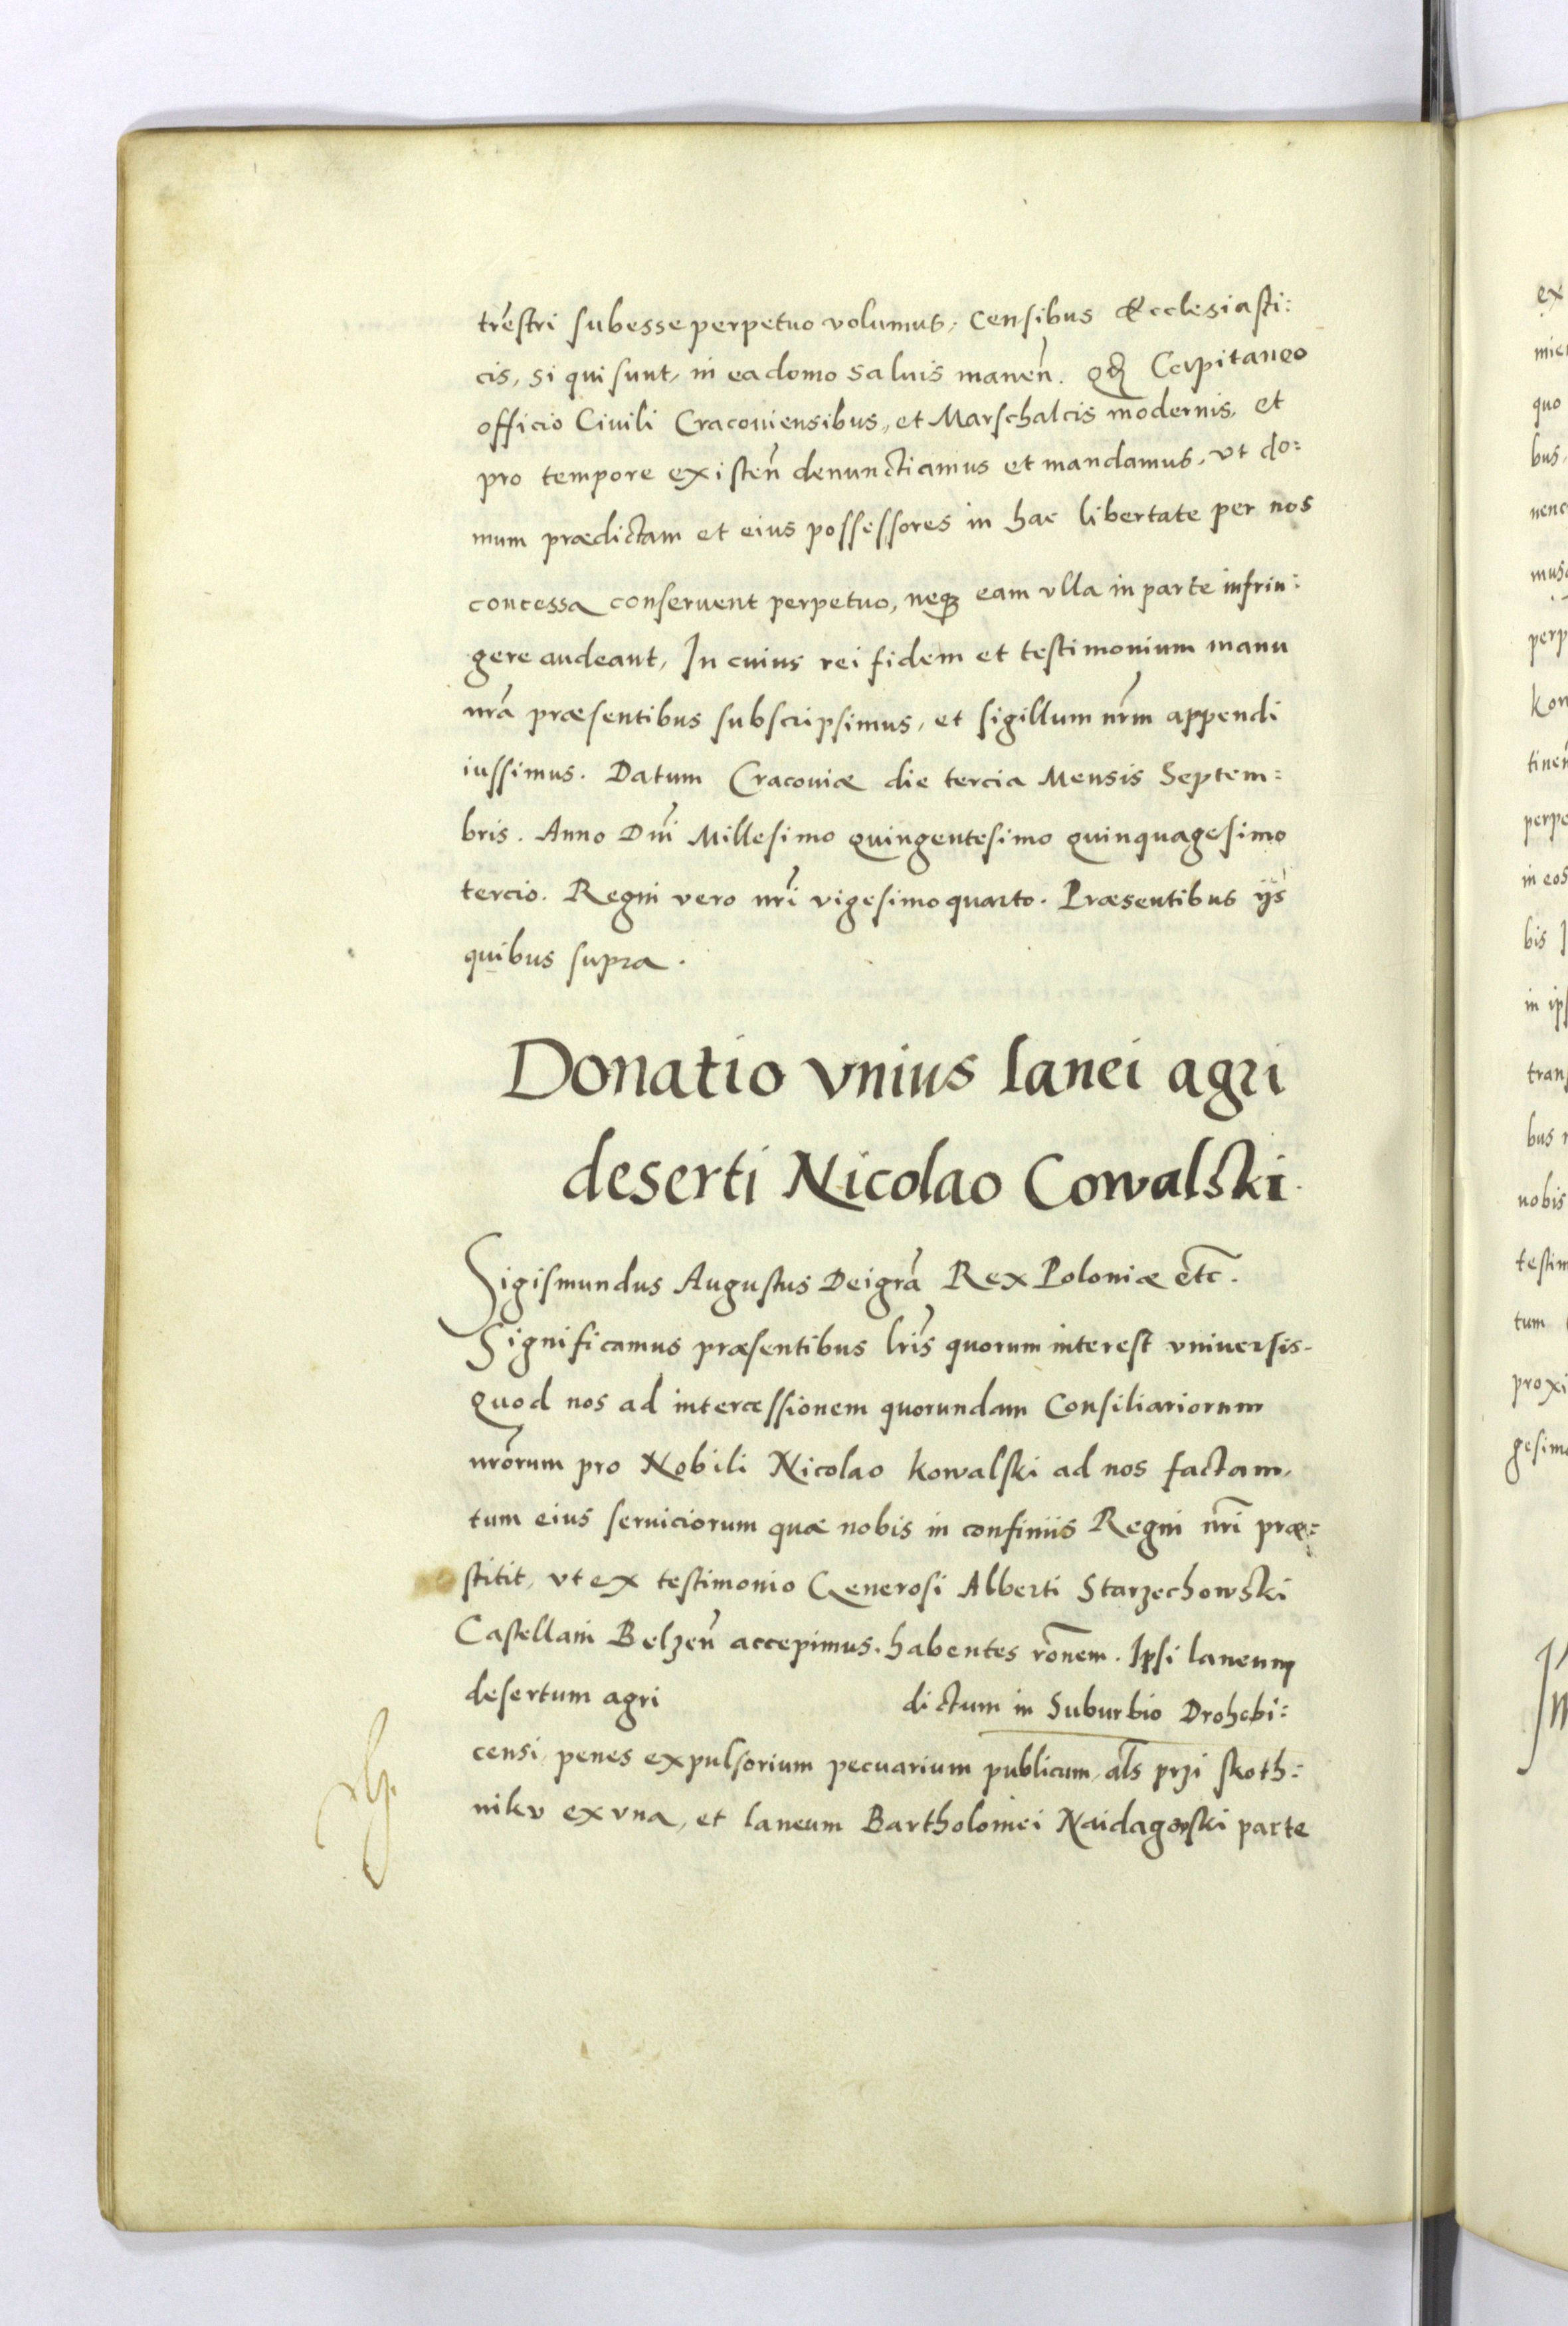 tr̃estri subesse perpetuo volumus, censibus Ecclesiasti:
cis, si qui sunt, in ea domo saluis manen̄. qd̄ Capitaneo
officio Ciuili Cracouiensibus, et Marschalcis modernis, et
pro tempore existen̄ denunctiamus et mandamus, vt do:
mum prædictam et eius possessores in hac libertate per nos
concessa conseruent perpetuo, neq3 eam vlla in parte infrin:
gere audeant, In cuius rei fidem et testimonium manu
nr̃a præsentibus subscripsimus, et sigillum nr̃m appendi
iussimus. Datum Cracouiæ die tercia Mensis Septem:
bris. Anno Dn̄i Millesimo quingentesimo quinquagesimo
tercio. Regni vero nr̃i vigesimoquarto. Præsentibus ijs
quibus supra.
Donatio vnius lanei agri
deserti Nicolao Cowalski.
Sigismundus Augustus Dei gr̃a Rex Poloniæ etc̃.
Significamus præsentibus lr̃is quorum interest vniuersis.
quod nos ad intercessionem quorundam Consiliariorum
nr̃orum pro Nobili Nicolao Kowalski ad nos factam,
tum eius seruiciorum quæ nobis in confiniis Regni nr̃i præ:
stitit, vt ex testimonio Generosi Alberti Starzechowski
Castellani Belzen̄ accepimus. habentes rõnem. Ipsi laneum
desertum agri dictum in Suburbio Drohobi:
censi, penes expulsorium pecuarium publicum, als̃ przi skoth:
niku ex vna, et laneum Bartholomei Naidagorski parte
ex
mie
quo
bus,
nenc
musq
perp
kow
tinen̄
perpe
in eos
bis I
in ips
trans
bus n
nobis
testim
tum
proxi
gesimo